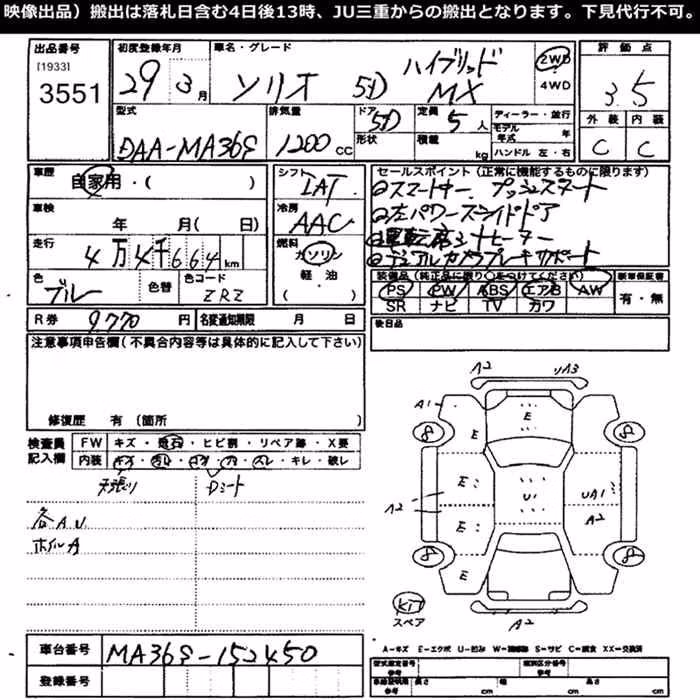 映像出品）搬出は落札日含む4日後13時、JU三重からの搬出となります。下見代行不可。
出品番号
[1933]
3551
初度登録年月
29 3月
車名・グレード
ソリオ 5D ハイブリッド MX
2WD
4WD
評価点
3.5
外装 内装
C C
型式
DAA-MA36S
排気量
1200 CC
ドア 5D
形状
定員 5人
積載 kg
ディーラー・並行
モデル年式 年
ハンドル 左・右
車歴
自家用・( )
車検
年 月( 日)
走行
4万4千664km
色
ブルー
色替
色コード
ZRZ
シフト
IAT
冷房
AAC
燃料
ガソリン
軽・油
( )
セールスポイント(正常に機能するものに限ります)
スマートキー プッシュスタート
左パワースライドドア
運転席シートヒーター
デュアルカメラブレーキサポート
装備品(純正品に限り○をつけてください)
PS PW ABS エアB AW
SR ナビ TV カワ
新車保証書
有・無
後日品
R券 9,770円
名変通知期限 月 日
注意事項申告欄(不具合内容等は具体的に記入して下さい)
修復歴 有(箇所 )
検査員記入欄
FW キズ・飛石・ヒビ割・リペア跡・X要
内装 キズ・コゲ・スレ・キレ・破レ
天張り Dシート
各AU
ホイルA
A2 UA3
A1
E
8 8
E
E U1 UA1
A2 A2
E
8 8
E
Kit
スペア
A2
A-キズ E-エクボ U-凹み W-補修跡 S-サビ C-腐食 XX-交換済
車台番号 MA36S-152450
登録番号
型式指定番号 参考
類別区分番号 参考
車検証記載 参考 長さ cm 幅 cm 高さ cm